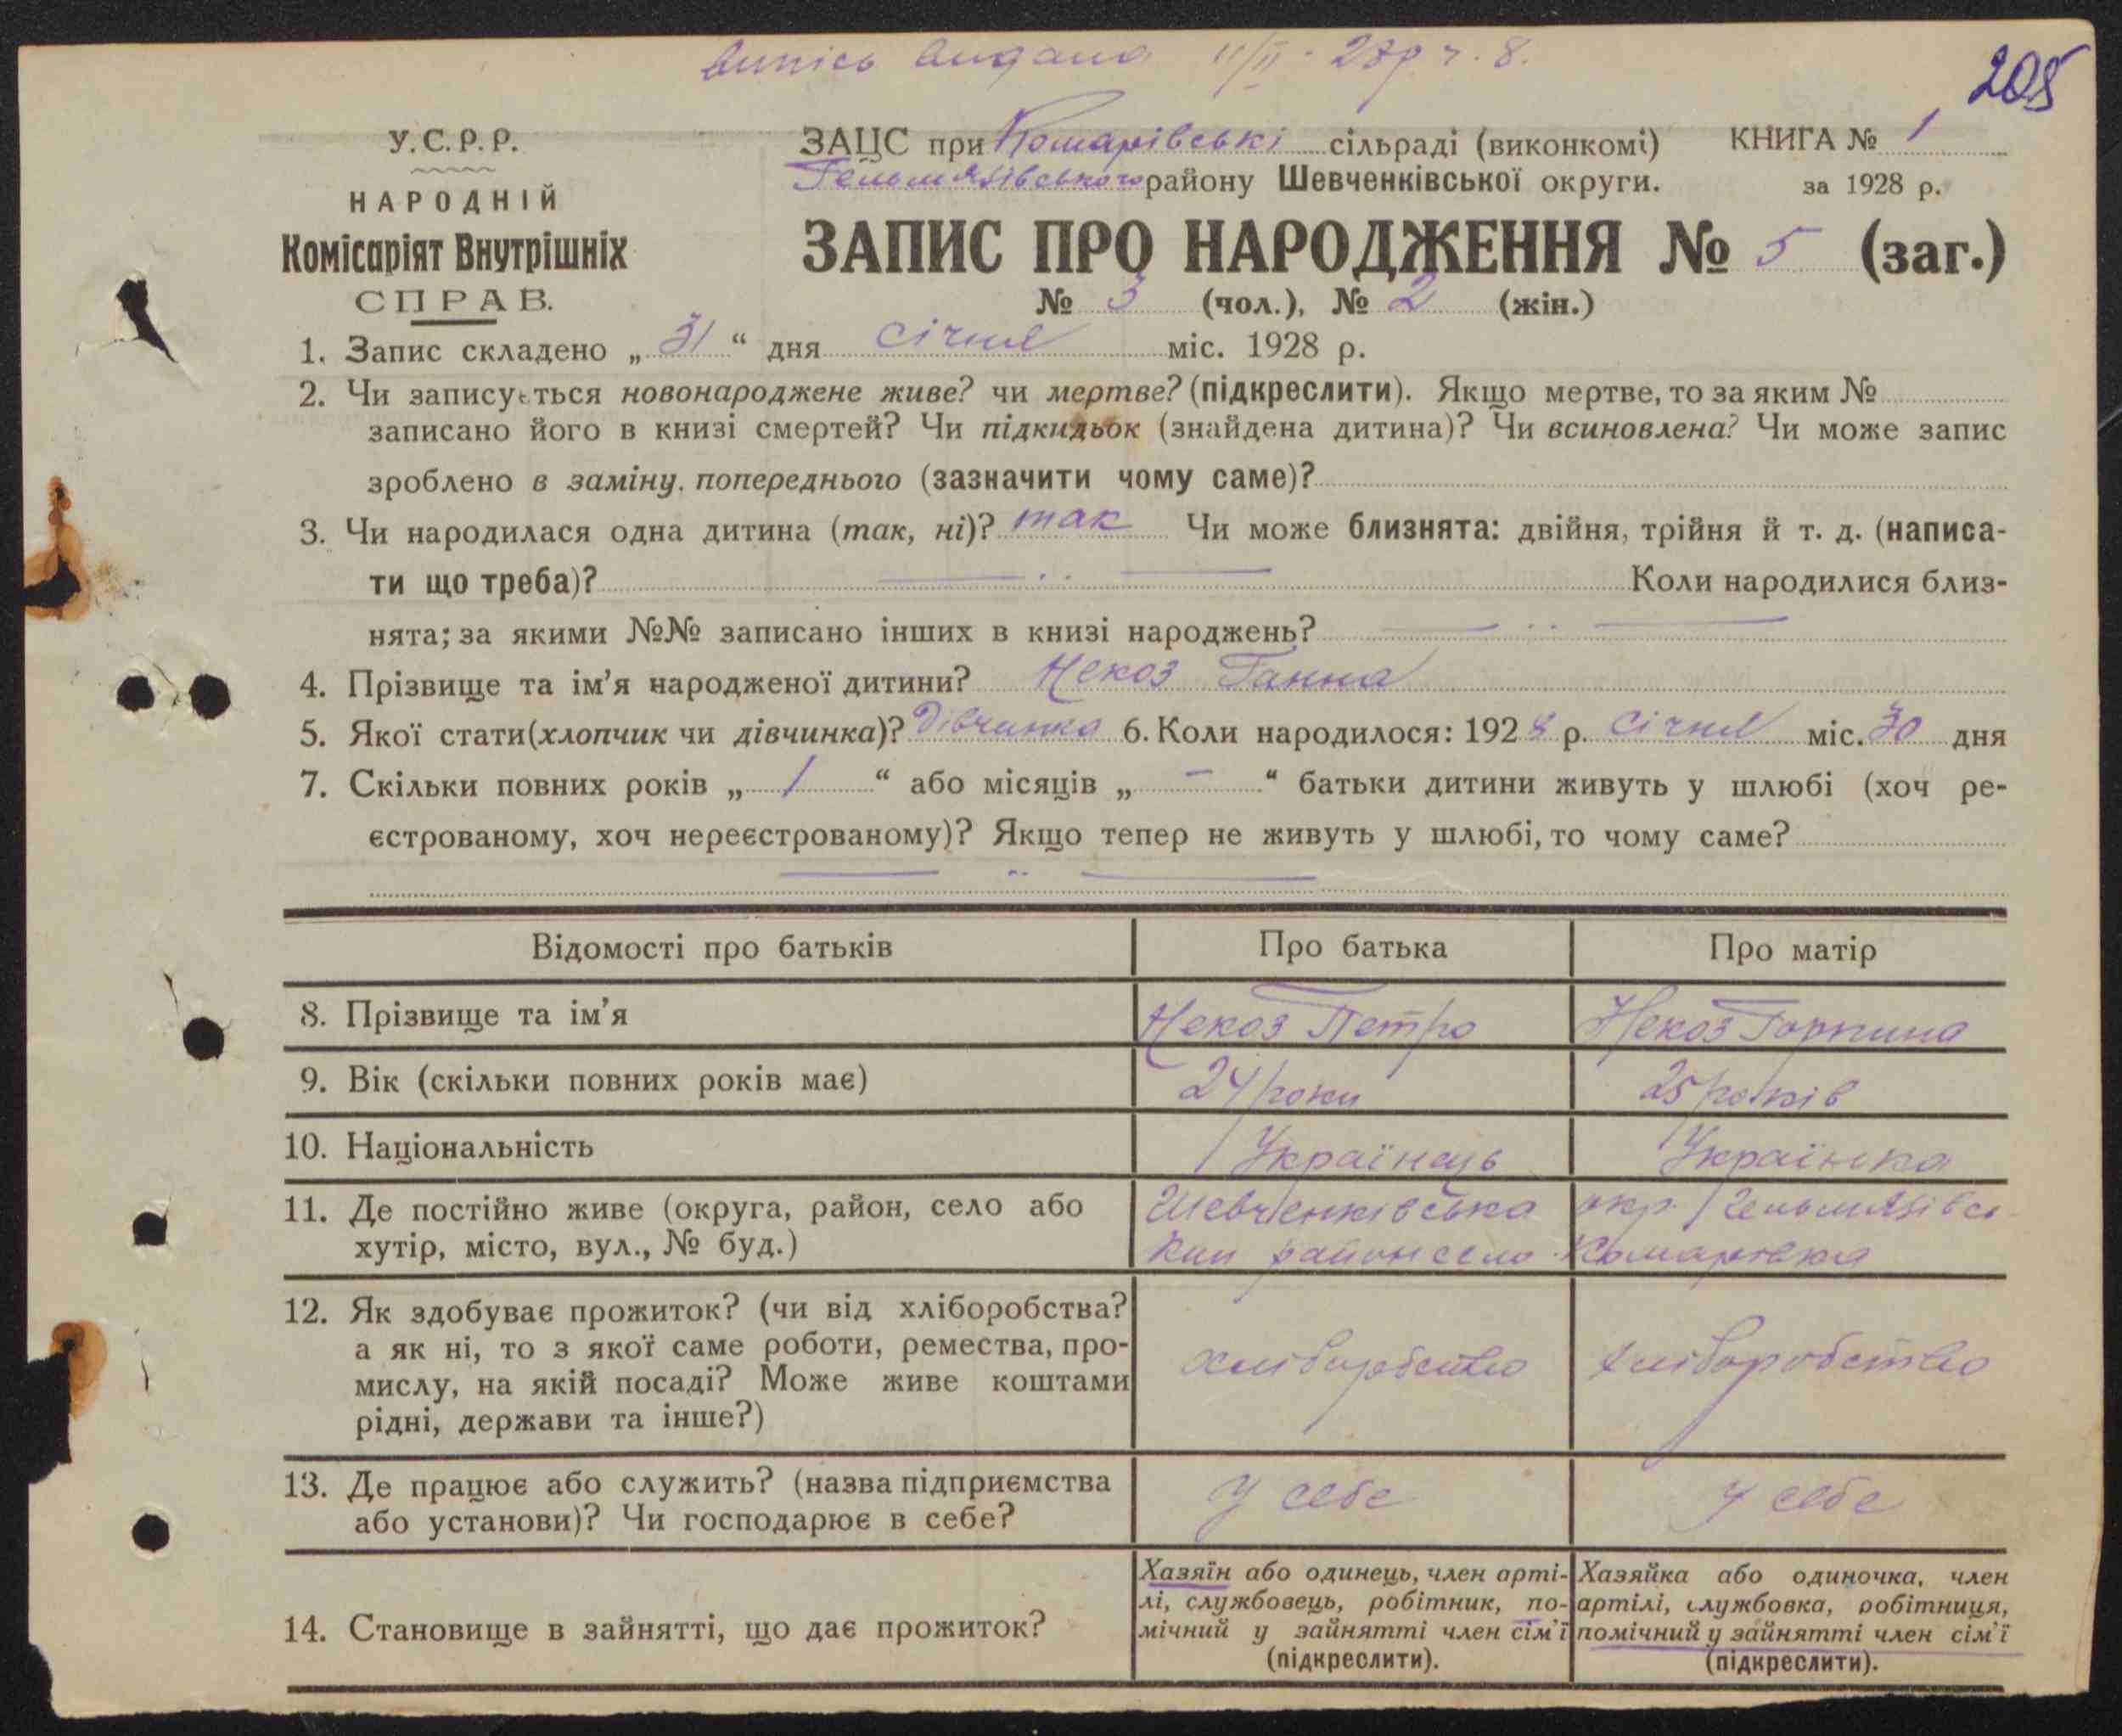 випісь видана 11/II - 28р ч. 8.
205
У.С.Р.Р.
НАРОДНІЙ
Комісаріят Внутрішніх
СПРАВ.
ЗАЦС при Комарівські сільраді (виконкомі)
Гельмязівського району Шевченківської округи.
КНИГА № 1
за 1928 р.
ЗАПИС ПРО НАРОДЖЕННЯ № 5 (заг.)
№ 3 (чол.), № 2 (жін.)
1. Запис складено „ 31 “ дня січня міс. 1928 р.
2. Чи записується новонароджене живе? чи мертве? (підкреслити). Якщо мертве, то за яким №
записано його в книзі смертей? Чи підкидьок (знайдена дитина)? Чи всиновлена? Чи може запис
зроблено в заміну. попереднього (зазначити чому саме)?
3. Чи народилася одна дитина (так, ні)? так Чи може близнята: двійня, трійня й т. д. (написа-
ти що треба)? Коли народилися близ-
нята; за якими №№ записано інших в книзі народжень?
4. Прізвище та ім’я народженої дитини? Некоз Ганна
5. Якої стати (хлопчик чи дівчинка)? дівчинка 6. Коли народилося: 1928 р. січня міс. 30 дня
7. Скільки повних років „ 1 “ або місяців „ - “ батьки дитини живуть у шлюбі (хоч ре-
єстрованому, хоч нереєстрованому)? Якщо тепер не живуть у шлюбі, то чому саме?
Відомості про батьків Про батька Про матір
8. Прізвище та ім’я Некоз Петро Некоз Горпина
9. Вік (скільки повних років має) 24 роки 25 років
10. Національність Українець Українка
11. Де постійно живе (округа, район, село або Шевченківська окр. Гельмязівсь-
хутір, місто, вул., № буд.) кий район село Комарівка
12. Як здобуває прожиток? (чи від хліборобства?
а як ні, то з якої саме роботи, ремества, про-
мислу, на якій посаді? Може живе коштами
рідні, держави та інше?)
хліборобство хліборобство
13. Де працює або служить? (назва підприємства
або установи)? Чи господарює в себе?
у себе у себе
14. Становище в зайнятті, що дає прожиток?
Хазяїн або одинець, член арті-
лі, службовець, робітник, по-
мічний у зайнятті член сім’ї
(підкреслити).
Хазяйка або одиночка, член
артілі, службовка, робітниця,
помічний у зайнятті член сім’ї
(підкреслити).